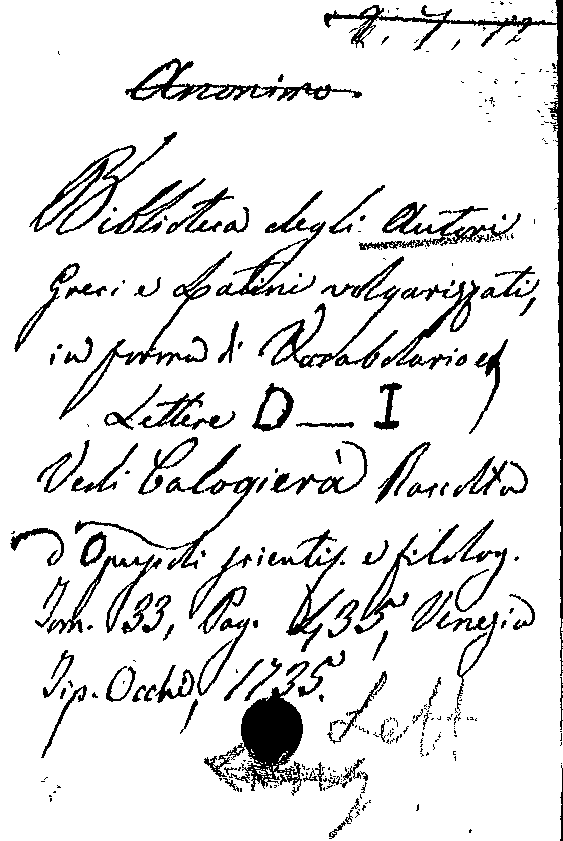 Anonimo.
Biblioteca degli Autori
Greci e Latini volgarizzati,
in forma di Vocabolario ec,
Lettere D — I
Vedi Calogierà Raccolta
d'Opuscoli scientif. e filolog.
Tom. 33, Pag. 435, Venezia
Tip. Occhi, 1735.
Lett.